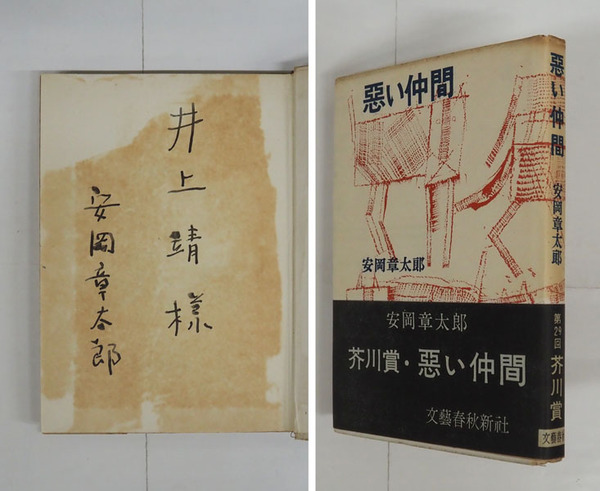 井上靖様
安岡章太郎
惡い仲間
安岡章太郎
安岡章太郎
芥川賞・惡い仲間
文藝春秋新社
惡い仲間
安岡章太郎
第29回
芥川賞
文藝春秋